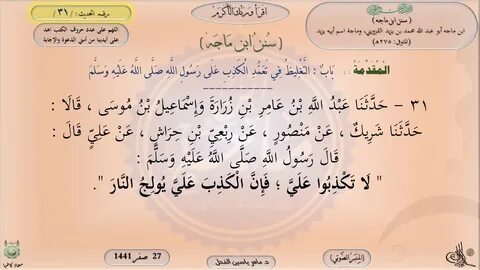 رقم الحديث : /٣١/
اقرأ وربك الأكرم
(سنن ابن ماجه)
ابن ماجه أبو عبد الله محمد بن يزيد القزويني، وماجة اسم أبيه يزيد
(المتوفى: ٢٧٥هـ)
اللهم على عدد حروف الكتب اهد
على أيدينا من أمتي الدعوة والإجابة
(سُنَنُ ابْنِ مَاجَه)
الْمُقَدِّمَةُ : بَابُ : التَّغْلِيظُ فِي تَعَمُّدِ الْكَذِبِ عَلَى رَسُولِ اللَّهِ صَلَّى اللَّهُ عَلَيْهِ وَسَلَّمَ
٣١ - حَدَّثَنَا عَبْدُ اللَّهِ بْنُ عَامِرِ بْنِ زُرَارَةَ وَإِسْمَاعِيلُ بْنُ مُوسَى ، قَالَا :
حَدَّثَنَا شَرِيكٌ ، عَنْ مَنْصُورٍ ، عَنْ رِبْعِيِّ بْنِ حِرَاشٍ ، عَنْ عَلِيٍّ قَالَ :
قَالَ رَسُولُ اللَّهِ صَلَّى اللَّهُ عَلَيْهِ وَسَلَّمَ :
" لَا تَكْذِبُوا عَلَيَّ ؛ فَإِنَّ الْكَذِبَ عَلَيَّ يُولِجُ النَّارَ ".
(المنبر الصوتي)
27 صفر 1441